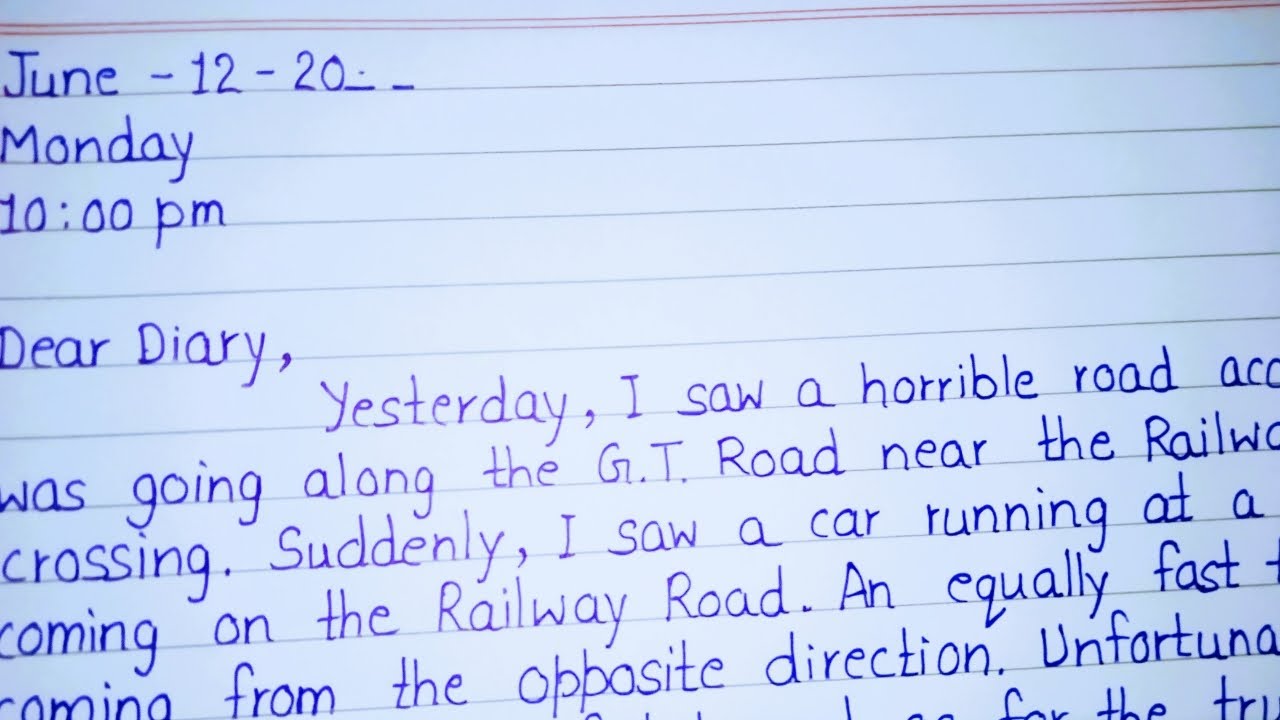 June - 12 - 20- -
Monday
10:00 pm
Dear Diary,
Yesterday, I saw a horrible road acc
was going along the G.T. Road near the Railwa
crossing. Suddenly, I saw a car running at a
coming on the Railway Road. An equally fast t
coming from the opposite direction. Unfortuna
for the tru